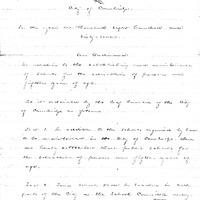 City of Cambridge.
In the year one thousand eight hundred and
sixty-
An Ordinance
In relation to the establishing and maintenance
of schools for the education of persons
fifteen years of age.
Be it ordained by the City Council of the City
of Cambridge as follows:
Sec 1 In addition to the schools required by law
to be maintained in the City of Cambridge, there
shall be established public schools for
the education of persons over fifteen years of
age.
Sec 2 Such schools shall be located in such
parts of the City as the School Committee